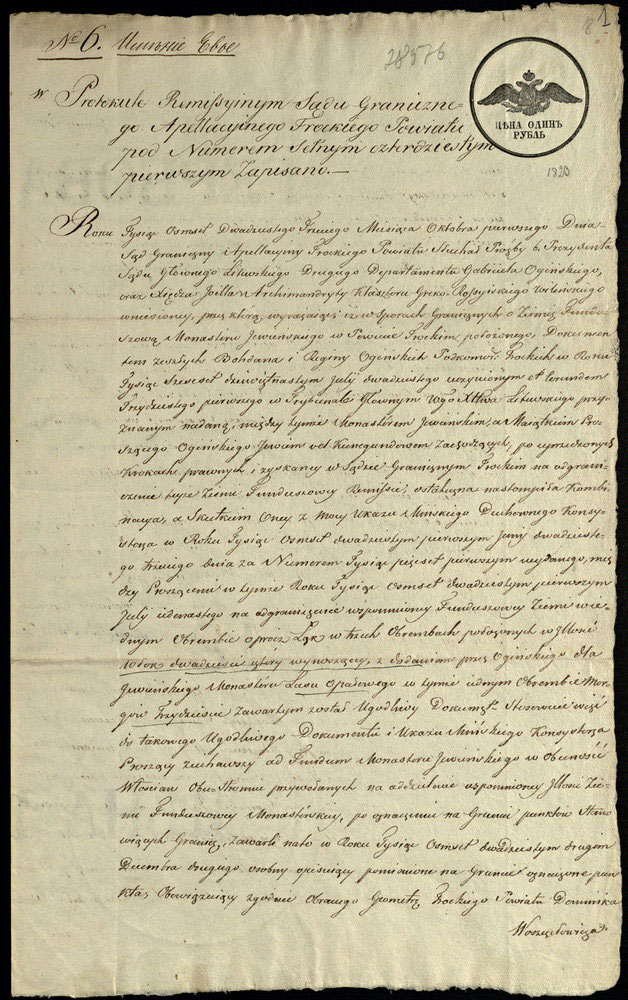 № 6. Имѣніе Евье
28576
1
ЦѢНА ОДИНЪ
РУБЛЬ
1820
w Protokule Remissyinym Sądu Graniczne-
go Apellacyinego Trockiego Powiatu
pod Numerem Setnym czterdziestym
pierwszym Zapisano.—
Roku Tysiąc Osmset Dwudziestego Trzeciego Miesiąca Oktobra pierwszego Dnia
Sąd Graniczny i Apellacyiny Trockiego Powiatu Słuchał Prozby b. Prezydenta
Sądu Głownego Litewskiego Drugiego Departamentu Gabriela Ogińskiego,
oraz Xiędza Joilla Archimandryty Klasztoru Greko-Rossyiskiego Wileńskiego
wniesioney, przez którą wyrażaiąc iż w Sporach Granicznych o Ziemię Fundu-
szową Monasteru Jewieńskiego w Powiecie Trockim położonego, Dokumen-
tem zeszłych Bohdana i Reginy Ogińskich Podkomor. Trockich w Roku
Tysiąc Szescset dziewiętnastym July dwudziestego uczynionym et eorundem
Trzydziestego pierwszego w Trybunale Głownym Wgo Xtwa Litewskiego przy-
znanym nadaną, między tymże Monasterem Jewieńskim, a Maiątkiem Pro-
szącego Ogińskiego Jewiem vel Kunegundowem Zachodzących, po uprzednich
Krokach prawnych, i zyskaney w Sądzie Granicznym Trockim na odgrani-
czenie teyże Ziemi Funduszowey Remissie, ostateczna nastąpiła Kombi-
nacya, a Skutkiem Oney z mocy Ukazu Mińskiego Duchownego Konsy-
storza w Roku Tysiąc Osmset dwudziestym pierwszym Junij dwudzieste-
go trzeciego dnia za Numerem Tysiąc pięćset pierwszym wydanego, mię-
dzy Proszącemi w tymże Roku Tysiąc Osmset dwudziestym pierwszym
July iedenastego na odgraniczenie wspomnioney Funduszowey Ziemi w ie-
dnym Obrembie oprocz Łąk w trzech Obrembach położonych w Ilości
Włok dwadzieścia cztery wynoszącey, z dodaniem przez Ogińskiego dla
Jewieńskiego Monasteru Lasu Opałowego w tymże iednym Obrembie Mor-
gow Trzydzieście Zawartym został Ugodliwy Dokument. Stosownie więc
do takowego Ugodliwego Dokumentu i Ukazu Mińskiego Konsystorza
Proszący ziechawszy ad Fundum Monasteru Jewieńskiego w Obecności
Włościan Obu Stronnie przywodanych na oddzielenie wspomnioney Ilości Zie-
mi Funduszowey Monasterskiey, po oznaczeniu na Gruncie punktow Stano-
wiących Granicę, Zawarli nato w Roku Tysiąc Osmset dwudziestym drugim
Decembra drugiego osobny opisuiący pomienione na Gruncie oznaczone pun-
kta, Obowiązuiący zgodnie Obranego Geometrę Trockiego Powiatu Dominika